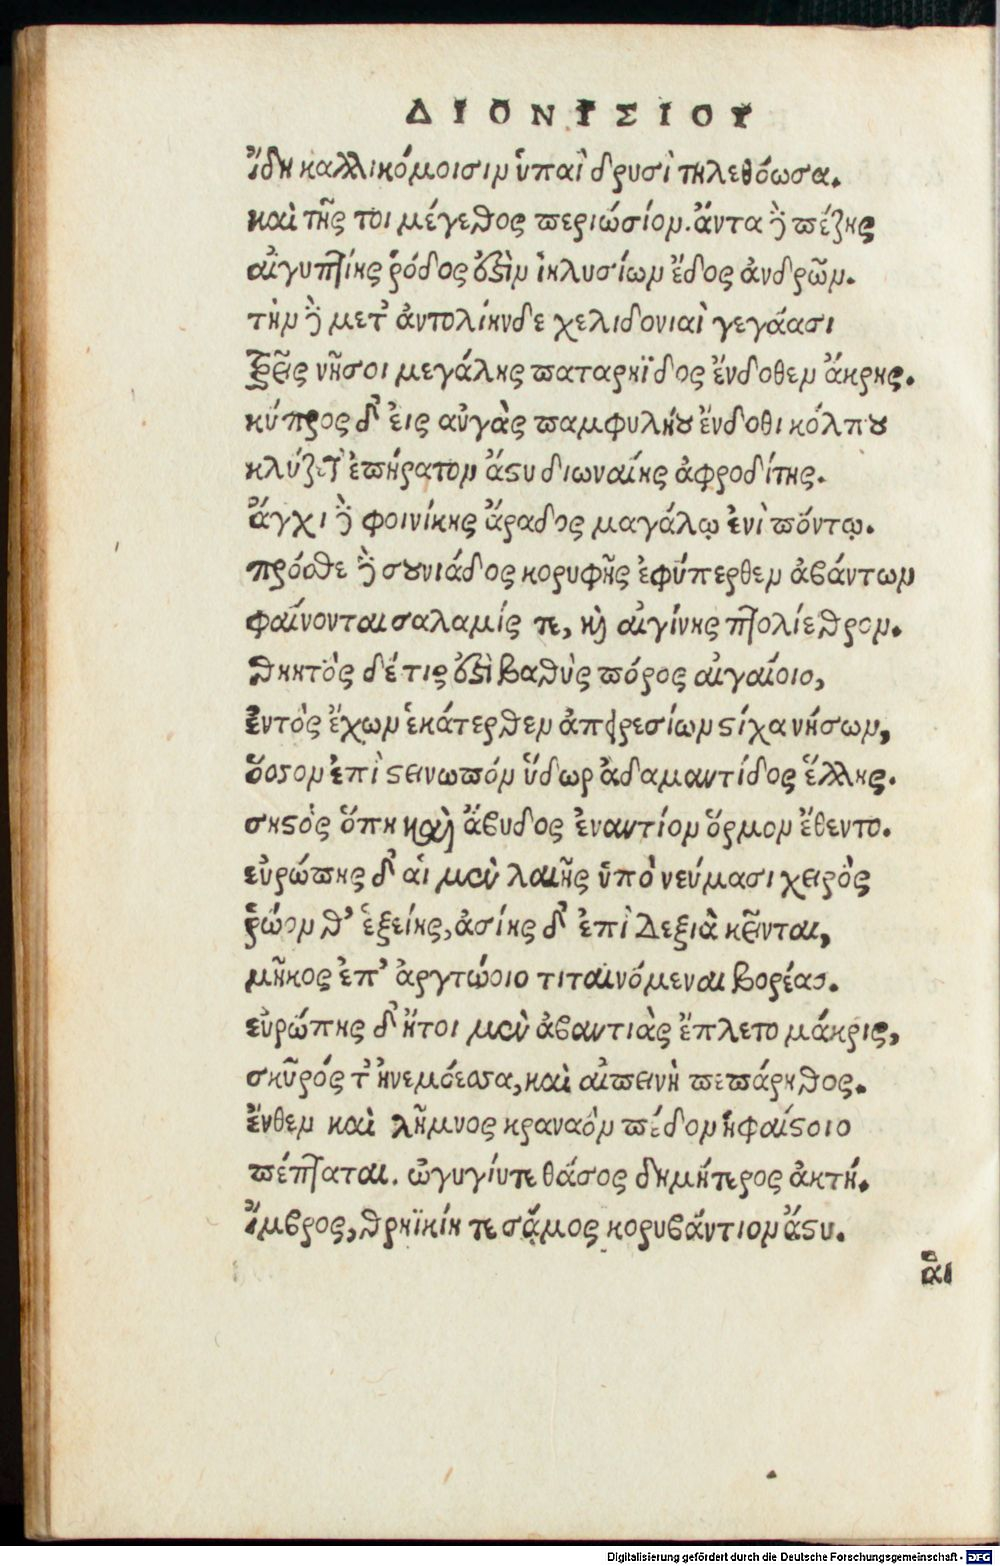 ΔΙΟΝΥΣΙΟΥ
Ἴδη καλλικόμοισιν ὑπαὶ δρυσὶ τηλεθόωσα.
καὶ τῆς τοι μέγεθος περιώσιον. ἄντα δὲ πέζης
αἰγυπτίης ῥόδος ἐστὶν ἰηλυσίων ἕδος ἀνδρῶν.
τὴν δὲ μετ' ἀντολίηνδε χελιδονιαὶ γεγάασι
τρεῖς νῆσοι μεγάλης παταρηΐδος ἔνδοθεν ἄκρης.
κύπρος δ' εἰς αὐγὰς παμφυλήου ἔνδοθι κόλπου
κλύζετ' ἐπήρατον ἄστυ διωναίης ἀφροδίτης.
ἄγχι δὲ φοινίκης ἄραδος μαγάλῳ ἐνὶ πόντῳ.
πρόσθε δὲ σουνιάδος κορυφῆς ἐφύπερθεν ἀβάντων
φαίνονται σαλαμίς τε, καὶ αἰγίνης πτολίεθρον.
θηητὸς δέ τις ἐστὶ βαθὺς πόρος αἰγαίοιο,
ἐντὸς ἔχων ἑκάτερθεν ἀπειρεσίων στίχα νήσων,
ὅσσον ἐπὶ στεινωπὸν ὕδωρ ἀδαμαντίδος ἕλλης.
σηστὸς ὅπη καὶ ἄβυδος ἐναντίον ὅρμον ἔθεντο.
εὐρώπης δ' αἱ μὲν λαιῆς ὑπὸ νεύμασι χειρὸς
ῥώον θ' ἑξείης, ἀσίης δ' ἐπὶ Δεξιὰ κεῖνται,
μῆκος ἐπ' ἀργτώοιο τιταινόμεναι βορέαο.
εὐρώπης δ' ἤτοι μὲν ἀβαντιὰς ἔπλετο μάκρις,
σκῦρός τ' ἠνεμόεσσα, καὶ αἰπεινὴ πεπάρηθος.
ἔνθεν καὶ λῆμνος κραναὸν πέδον ἡφαίστοιο
πέπταται. ὠγυγίη τε θάσος δημήτερος ἀκτή.
Ἴμβρος, θρηϊκίη τε σάμος κορυβάντιον ἄστυ.
αἳ
Digitalisierung gefördert durch die Deutsche Forschungsgemeinschaft - DFG